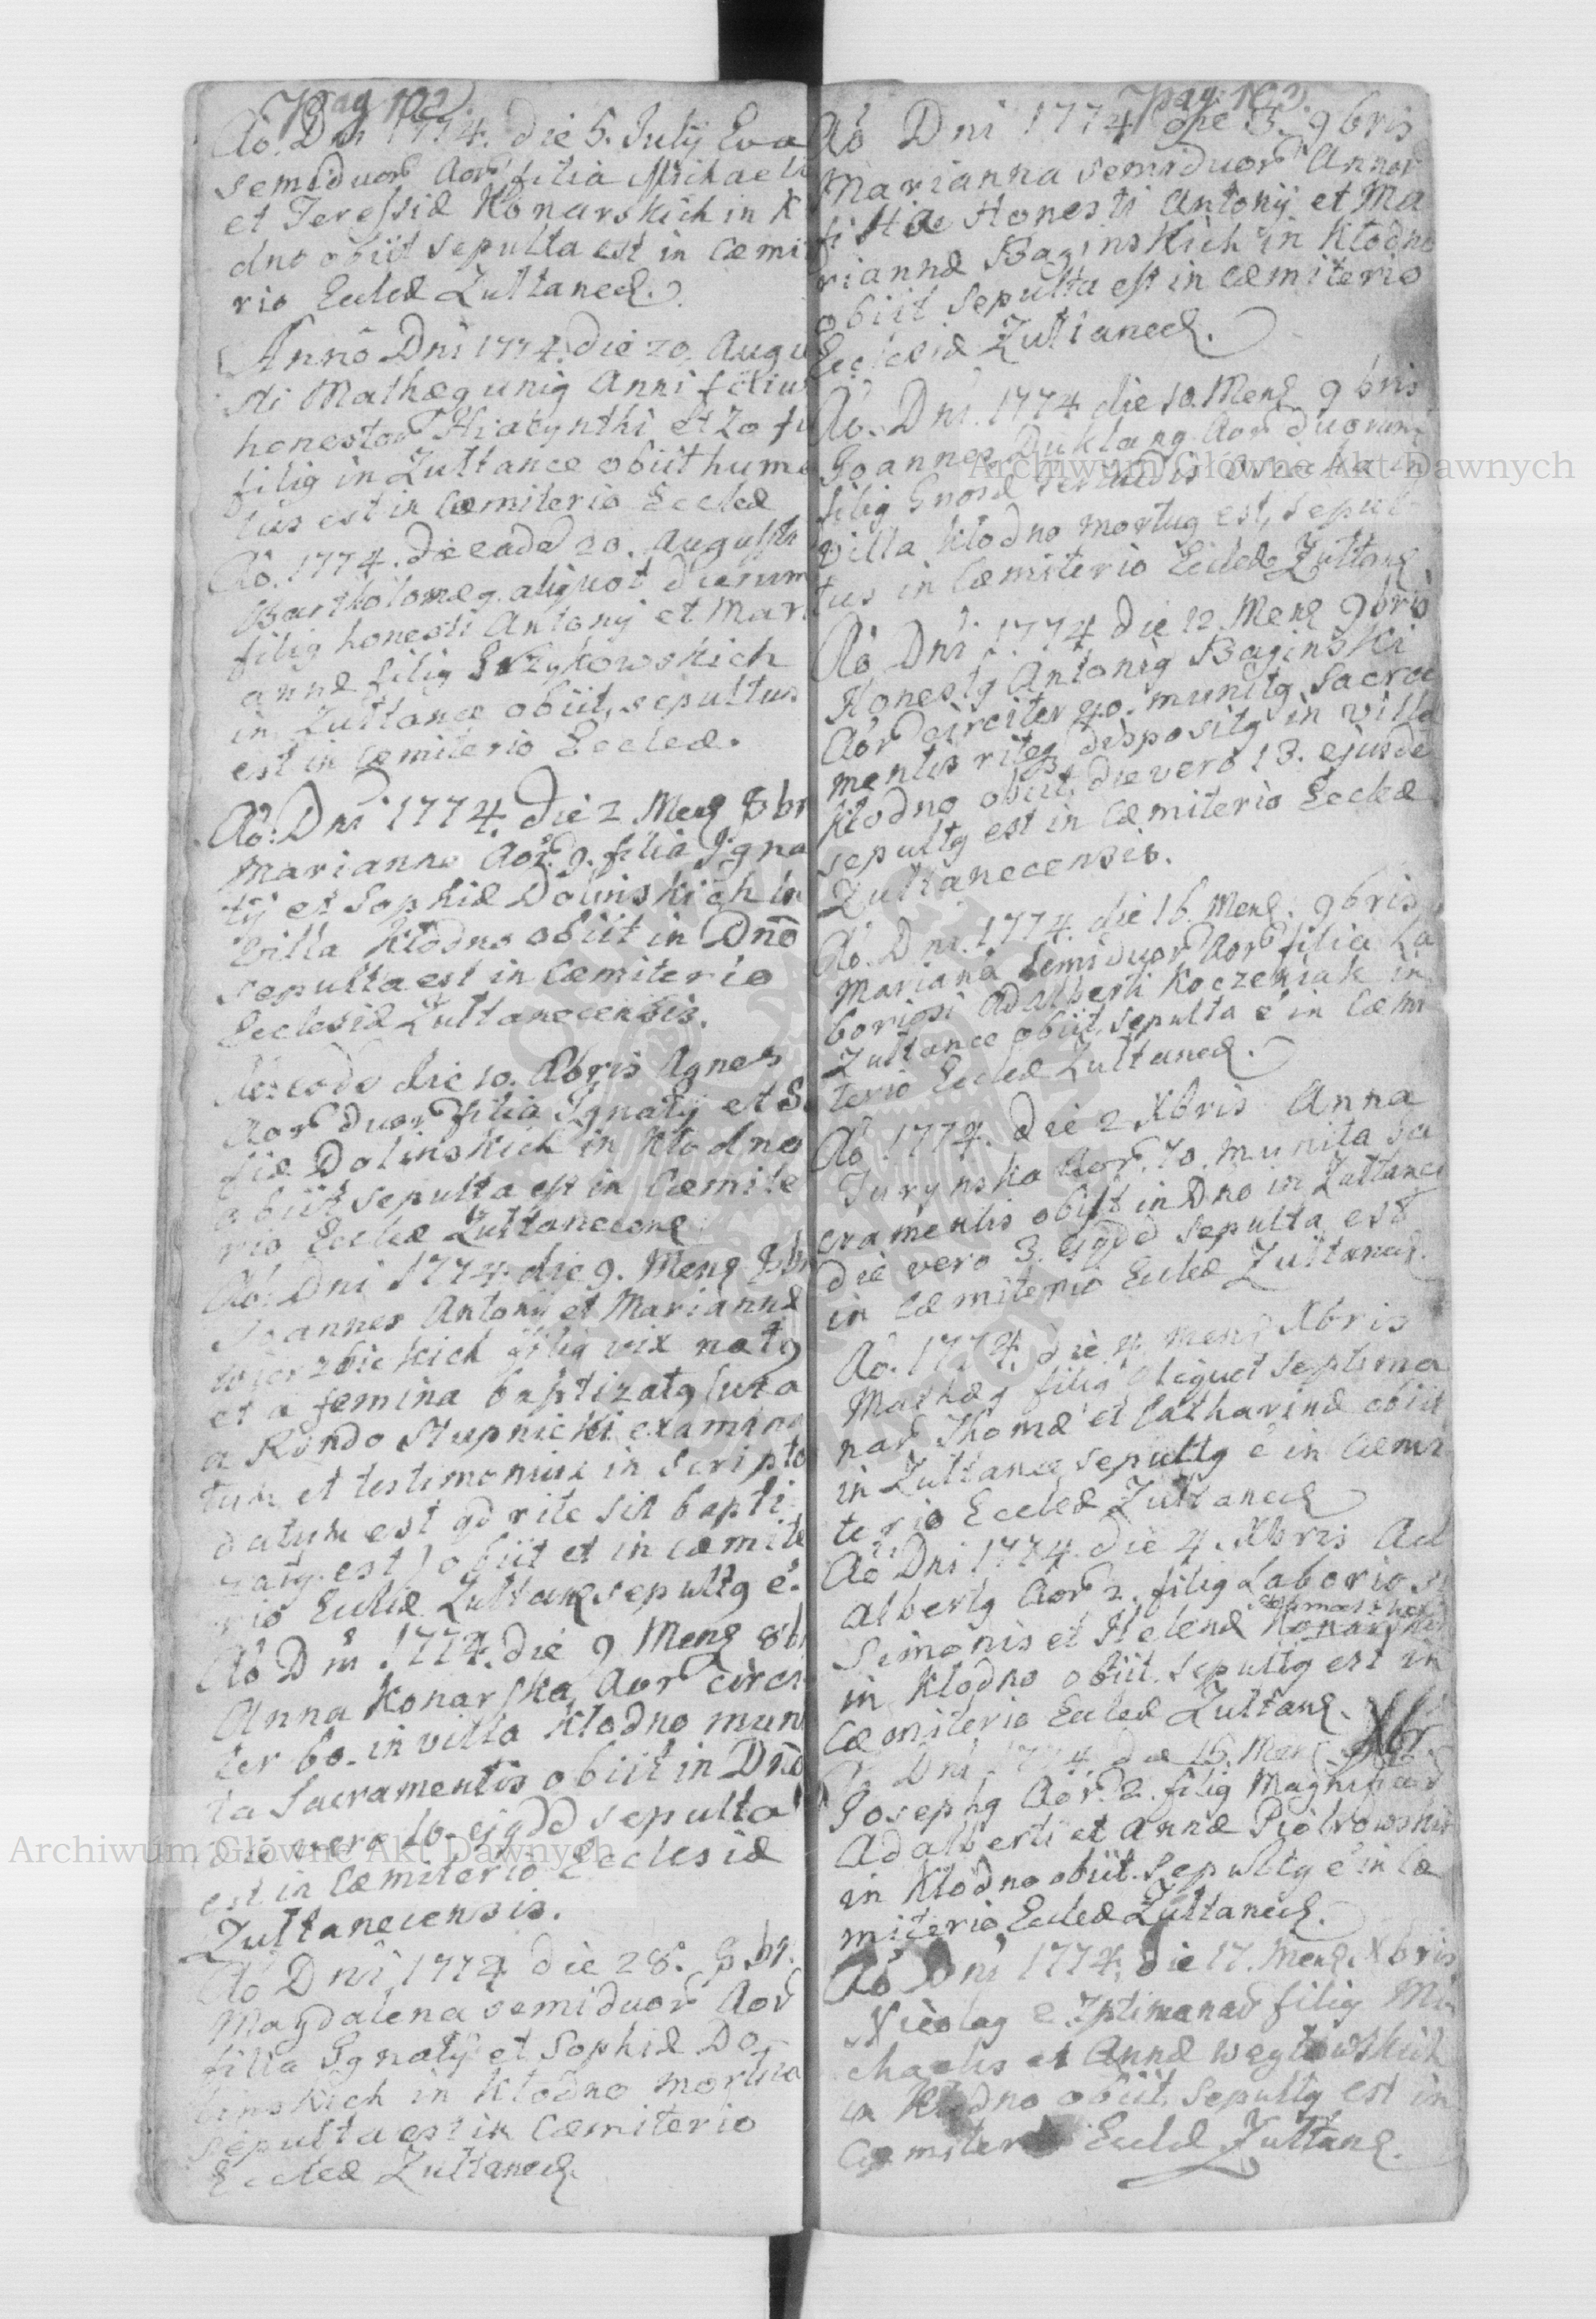 Pag 102
Ao. Dni 1774. die 5. Julij Eva
semiduor Aor filia Michaeli
et Teressiæ Konarskich in K
dno obiit sepulta est in Cæmi
rio Eccleæ Zultanec.
Anno Dni 1774. die 20. Augu
sti Mathæ9 uni9 Anni filius
honestor Hiacynthi et Zofi
fili9 in Zultance obiit huma
tus est in Cæmiterio Eccleæ
Ao. 1774. die eade 20. Augusti
Bartholomæ9 aliquot dierum
fili9 honesti Antonij et Mari
annæ fili9 Krzykowskich
in Zultance obiit, sepultus
est in Cæmiterio Eccleæ.
Ao: Dni 1774. die 2 Mens 8br
Marianna Aor. 9. filia Igna
tij et Sophiæ Dolinskich in
Villa Kłodno obiit in Dno
sepulta est in Cæmiterio
Ecclesiæ Zultanecensis.
Ao: eode die 10. 8bris Agnes
Aor duor filia Ignatij et So
fiæ Dolinskich in Kłodno
obiit sepulta est in Cæmite
rio Eccleæ Zultanecens
Ao: Dni 1774. die 9. Mens 8br
Joannes Antonij et Mariannæ
Wierzbickich fili9 vix nat9
et a femina baptizat9
a Rndo Stupnicki examina
tum et testimonium in scripto
datum est qd rite sit bapti
zat9 est) obiit et in Cæmite
rio Eccleæ Zultan sepult9 e.
Ao Dni 1774. die 9 Mens 8b
Anna Konarska Aor circi
ter 60. in villa Kłodno muni
ta Sacramentis obiit in Dno
die vero 10. ej9dd sepulta
est in Cæmiterio Ecclesiæ
Zultanecensis.
Ao Dni 1774 die 28. 8br.
Magdalena semiduor Aor
filia Ignatij et Sophiæ Do
linskich in Kłodno mortua
sepulta est in Cæmiterio
Eccleæ Zultanec.
Pag. 103
Ao Dni 1774 die 3. 9bris
Marianna semiduor Annor
filiæ Honesti Antonij et Ma
riannæ Baginskich in Kłodno
obiit sepulta est in Cæmiterio
Ecclesiæ Zultanec.
Ao. Dni. 1774 die 10. Mens 9bris
Joannes Duklan9 Aor duorum
fili9
villa Kłodno mortu9 est, sepul
tus in Cæmiterio Eccleæ Zultane
Ao Dni. 1774 die 12 Mens 9bris
Honest9 Antoni9 Baginski
Aor circiter 40. munit9 Sacra
mentis rite9 disposit9 in villa
Kłodno obiit, die vero 13. ejusde
sepult9 est in Cæmiterio Eccleæ
Zultanecensis.
Ao. Dni. 1774. die 16. Mens. 9bris
Mariana semiduor Aor filia La
boriosi Adalberti Koczeniak in
Zultance obiit, sepulta e in Cæmi
terio Eccleæ Zultanec.
Ao 1774. die 2 Xbris Anna
Turynska Aor. 70. munita Sa
cramentis obiit in Dno in Zultance
die vero 3. ej9dd sepulta est
in Cæmiterio Eccleæ Zultanec.
Ao. 1774. die 4 Mens Xbris
Mathæ9 fili9 aliquot septima
nar Thomæ et Catharinæ obiit
in Zultance sepult9 e in Cæmi
terio Eccleæ Zultanec
Ao Dni 1774. die 4. Xbris Ad
albert9 Aor 2. fili9 Laboriosi
Simonis et Helenæ Konarski
in Kłodno obiit. sepult9 est in
Cæmiterio Eccleæ Zultan.
Ao Dni 1774 die 16. Mens Xbr
Joseph9 Aor. 2. fili9 Magnificor
Adalberti et Annæ Piotrowskich
in Kłodno obiit. sepult9 e in Cæ
miterio Eccleæ Zultanec.
Ao Dni 1774, die 17. Mens. Xbris
Nicola9 2 septimanar fili9 Mi
chaelis et Annæ Węgłowskich
in Kłodno obiit. sepult9 est in
Cæmiterio Eccleæ Zultan.
Archiwum Główne Akt Dawnych
Archiwum Główne Akt Dawnych